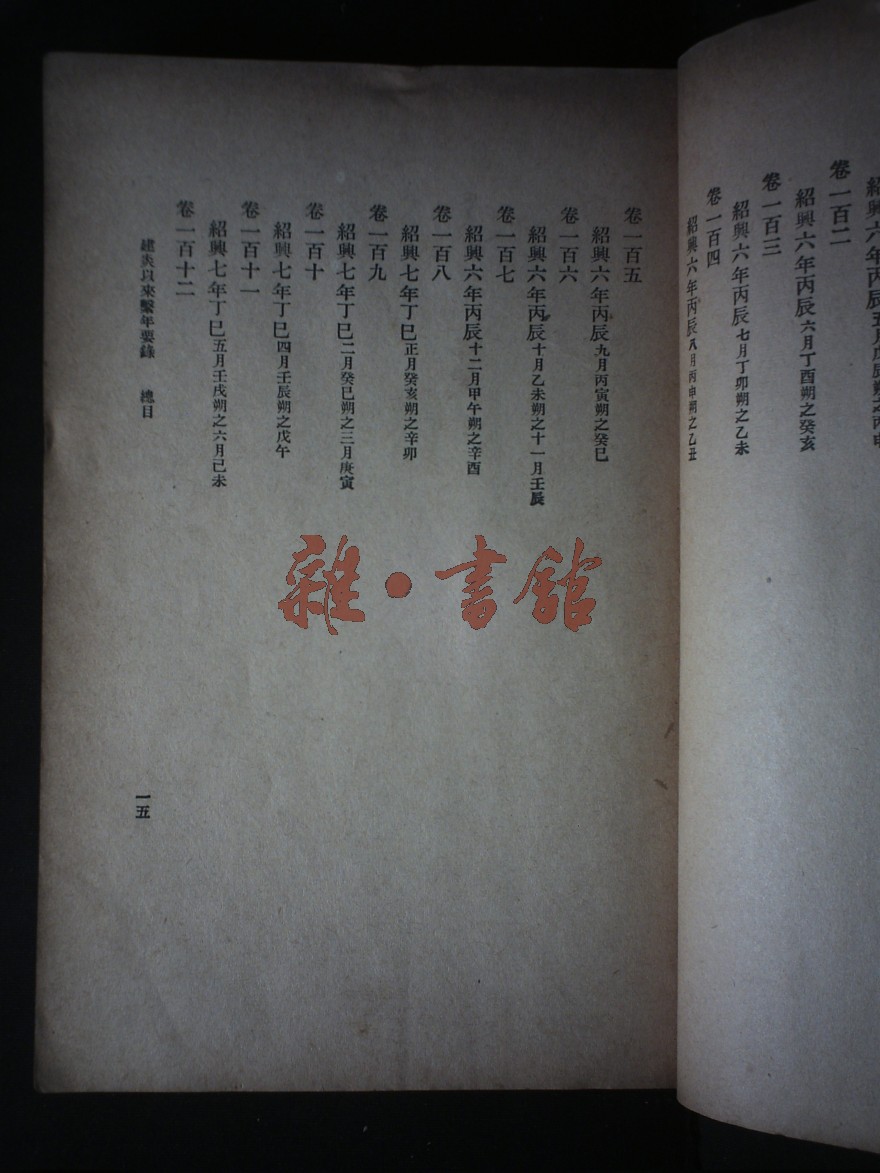 紹興六年丙辰五月戊辰朔之丙申
卷一百二
紹興六年丙辰六月丁酉朔之癸亥
卷一百三
紹興六年丙辰七月丁卯朔之乙未
卷一百四
紹興六年丙辰八月丙申朔之乙丑
卷一百五
紹興六年丙辰九月丙寅朔之癸巳
卷一百六
紹興六年丙辰十月乙未朔之十一月壬辰
卷一百七
紹興六年丙辰十二月甲午朔之辛酉
卷一百八
紹興七年丁巳正月癸亥朔之辛卯
卷一百九
紹興七年丁巳二月癸巳朔之三月庚寅
卷一百十
紹興七年丁巳四月壬辰朔之戊午
卷一百十一
紹興七年丁巳五月壬戌朔之六月己未
卷一百十二
建炎以來繫年要錄 總目
一五
雜·書館